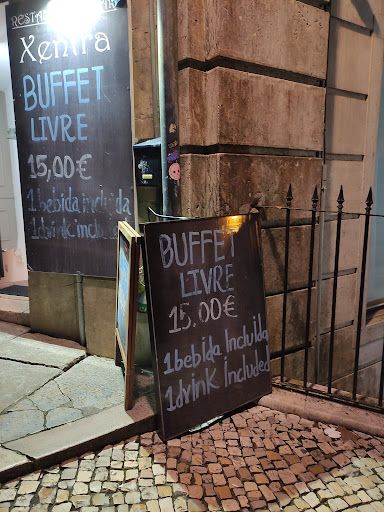 Xentra
BUFFET
LIVRE
15,00€
1 bebida incluida
1 drink inclu
BUFFET
LIVRE
15.00€
1 bebida Incluida
1 drink Included